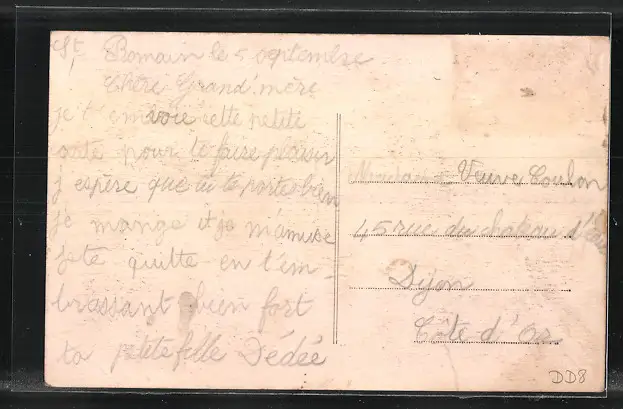 St Romain le 5 septembre
Chère Grand'mère
je t'envoie cette petite
carte pour te faire plaisir
j espère que tu te portes bien
je mange et je m'amuse
je te quitte en t'em-
brassant bien fort
ta petite fille Dédée
Madame Veuve Coulon
45 rue du château d'eau
Dijon
Côte d'Or
DD8